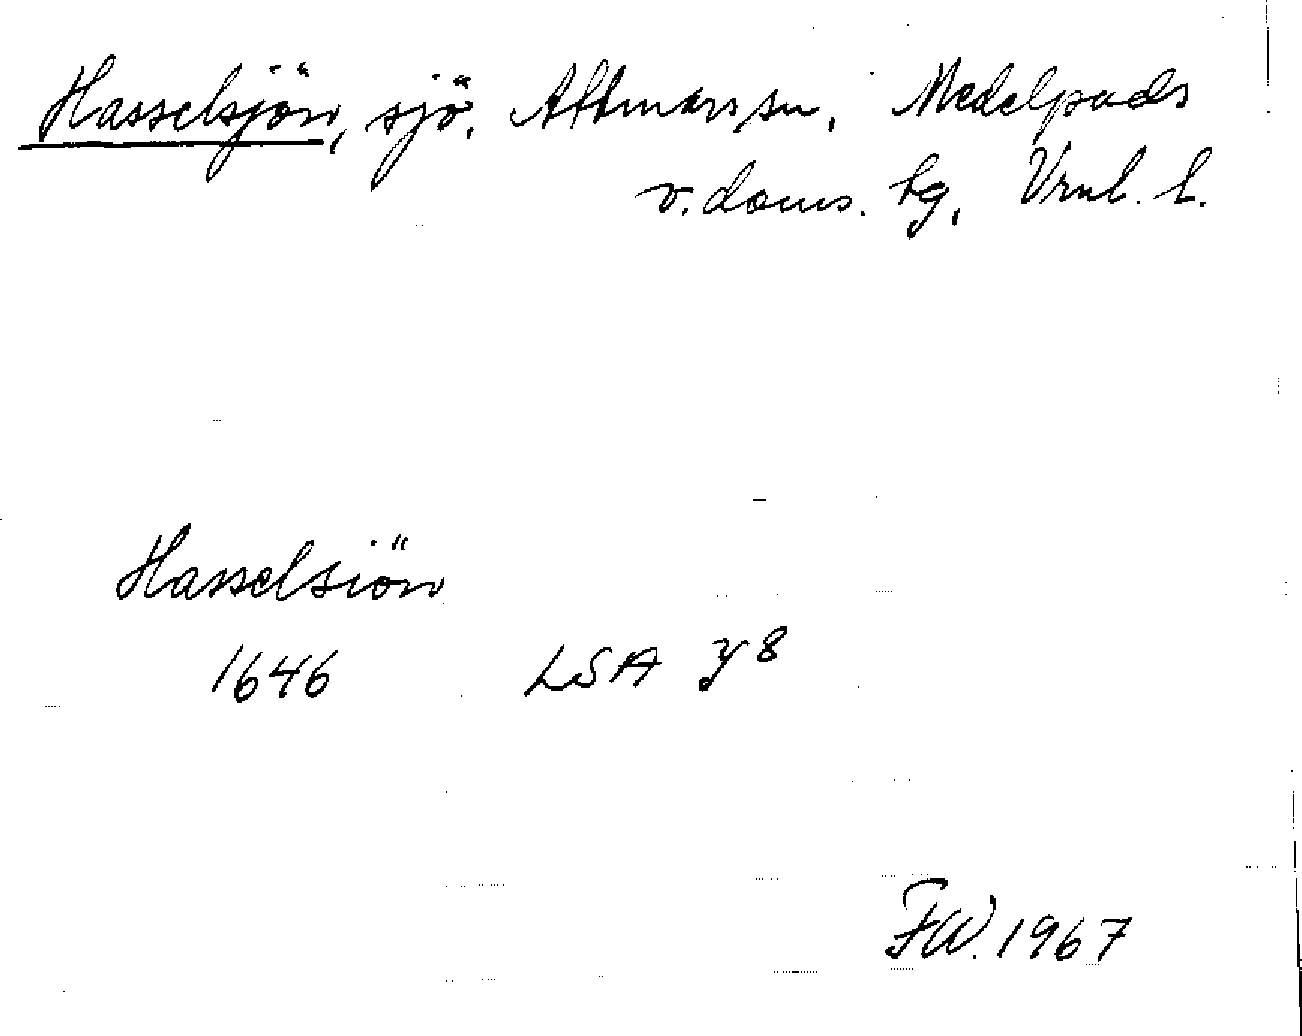 Hasselsjön, sjö, Attmars sn, Medelpads
v. doms. hg, Vrnl. l.
Hasselsiön
1646 LSA Y 8
FW. 1967